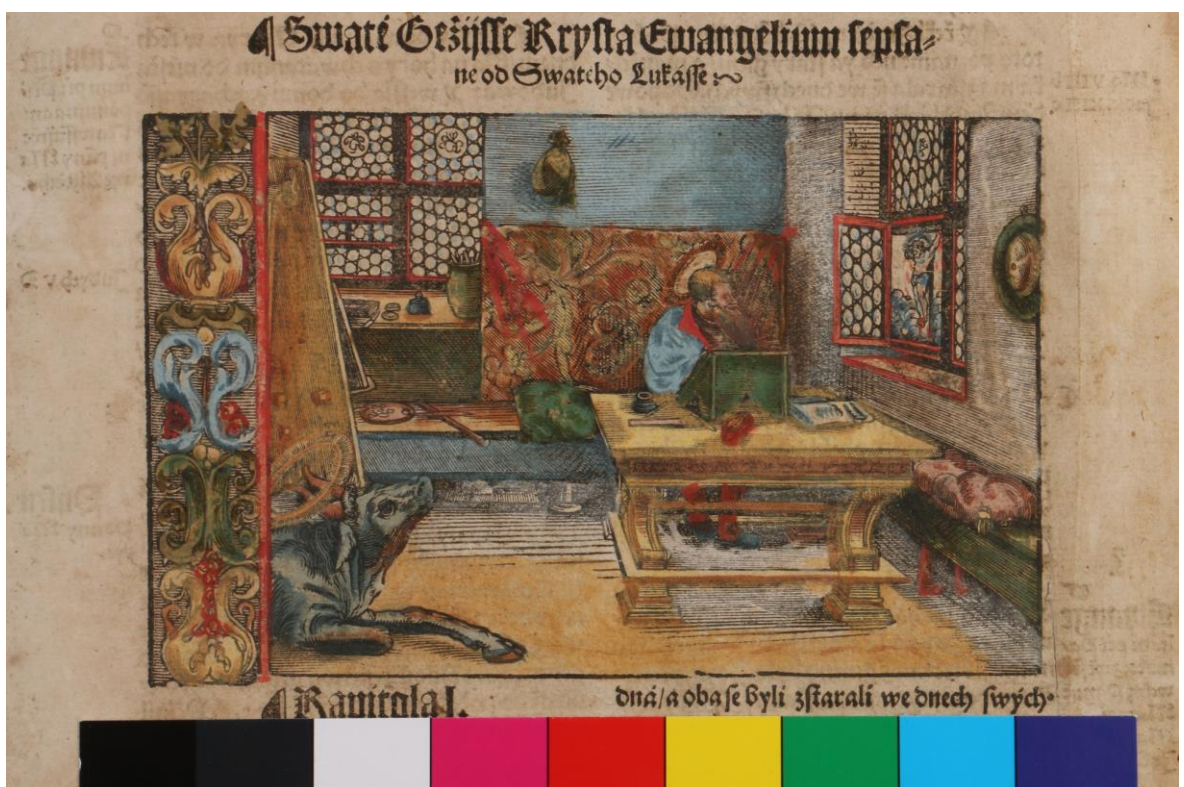 ¶ Swaté Gežijsse Krysta Ewangelium sepsa⸗
ne od Swateho Lukásse:~
¶ Kapitola I.
dná/a oba se byli zstarali we dnech swých⸱